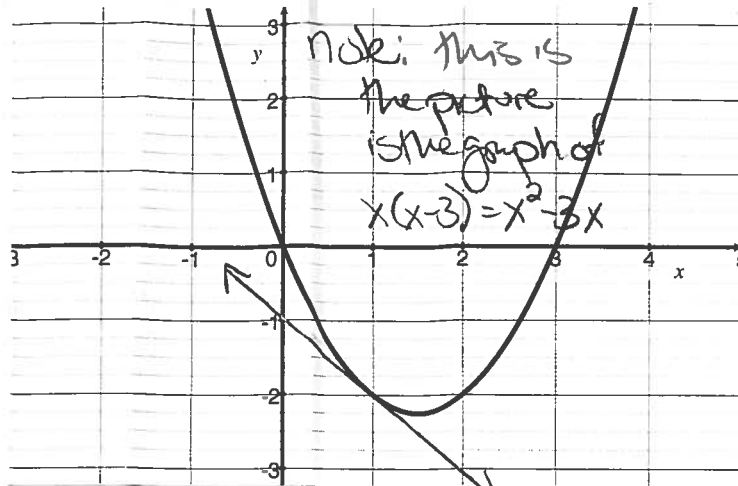 3
y
note: this is
the picture
2
is the graph of
1
x(x-3)=x²-3x
3 -2 -1 0 1 2 3 4 x
-1
-2
-3